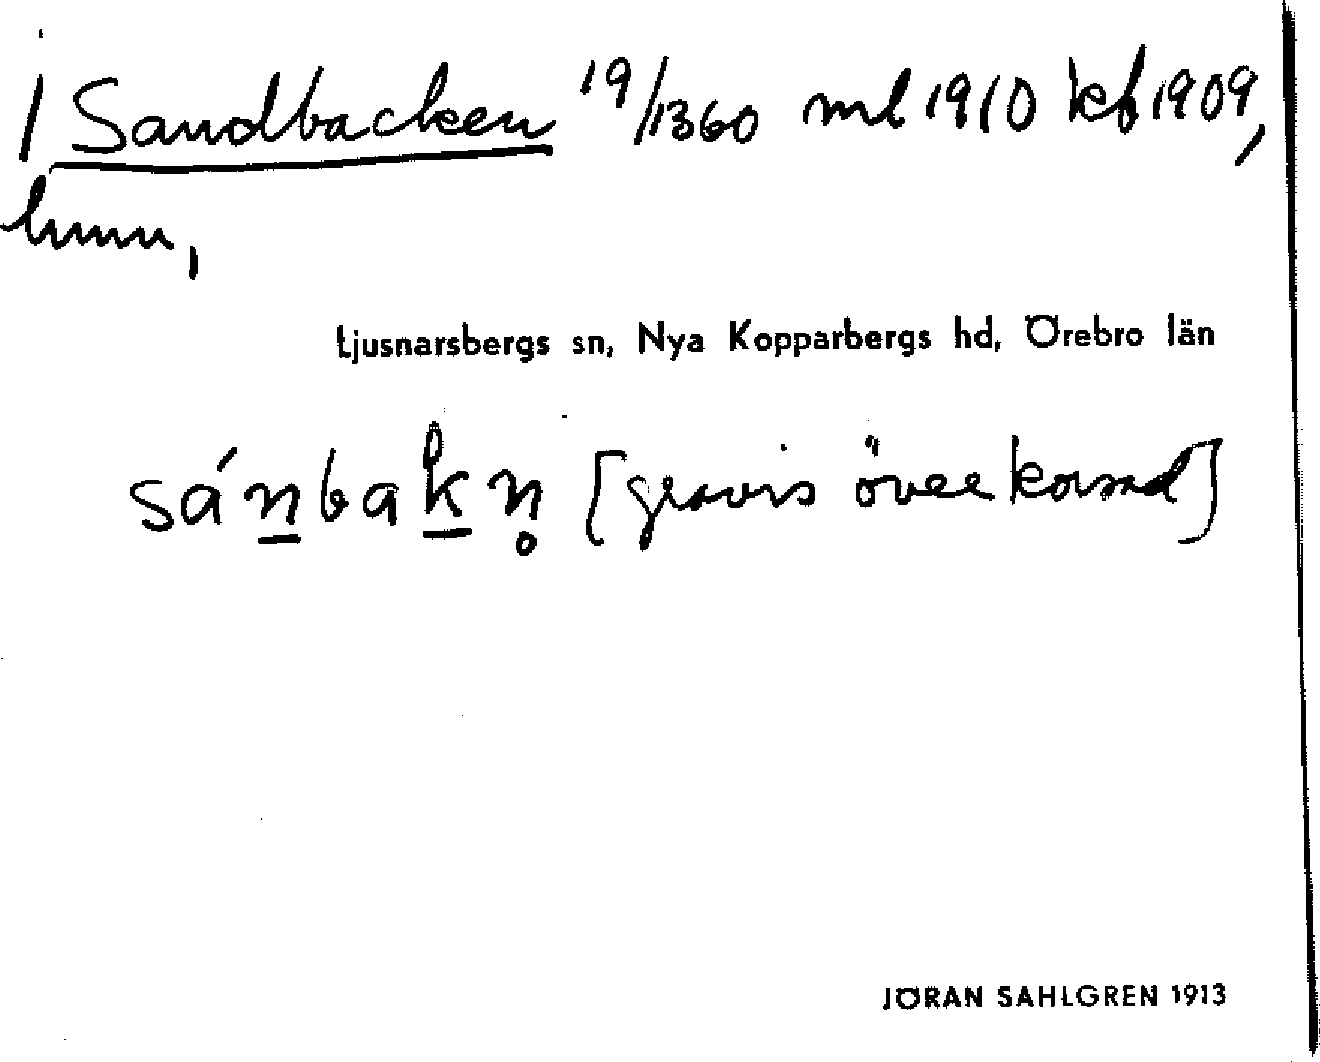 / Sandbacken 19/1360 ml 1910 kb 1909,
hmn,
Ljusnarsbergs sn, Nya Kopparbergs hd, Örebro län
sánbakn̥ [gravis överkorsad]
JÖRAN SAHLGREN 1913